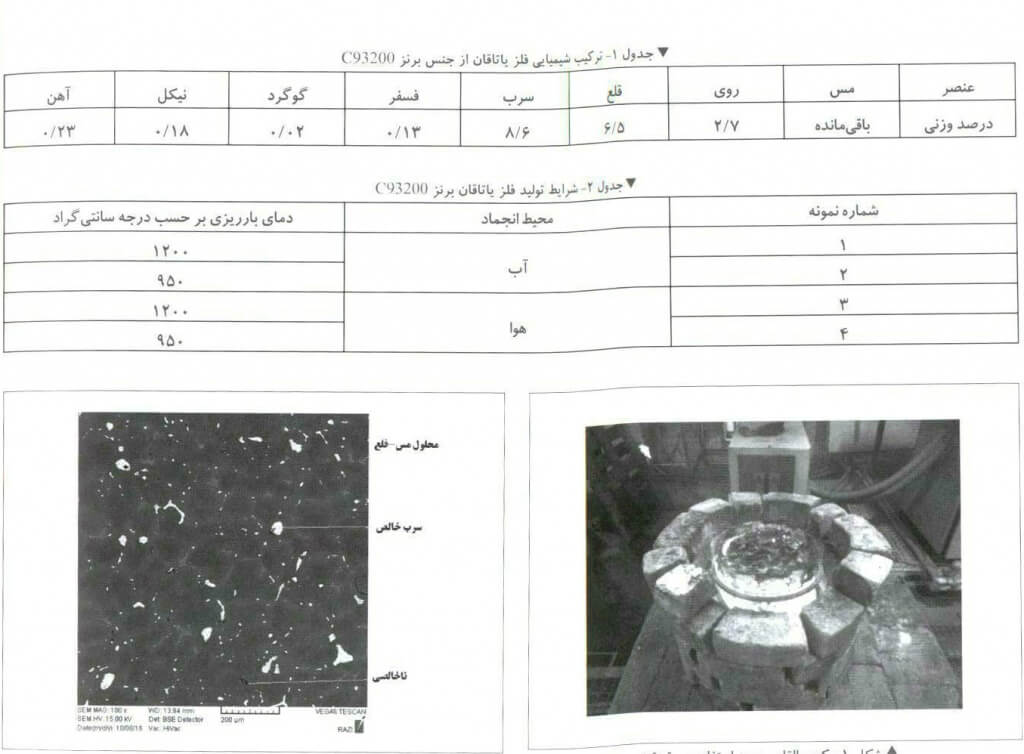 ▼ جدول ۱- ترکیب شیمیایی فلز یاتاقان از جنس برنز C93200
عنصر مس روی قلع سرب فسفر گوگرد نیکل آهن
درصد وزنی باقی‌مانده ۲/۷ ۶/۵ ۸/۶ ۰/۱۳ ۰/۰۲ ۰/۱۸ ۰/۲۳
▼ جدول ۲- شرایط تولید فلز یاتاقان برنز C93200
شماره نمونه محیط انجماد دمای بارریزی بر حسب درجه سانتی‌گراد
۱ آب ۱۲۰۰
۲ ۹۵۰
۳ هوا ۱۲۰۰
۴ ۹۵۰
محلول مس-قلع
سرب خالص
ناخالصی
SEM MAG: 100 x WD: 13.94 mm VEGA\\ TESCAN
SEM HV: 15.00 kV Det: BSE Detector 200 µm
Date(m/d/y): 10/06/15 Vac: HiVac RAZI